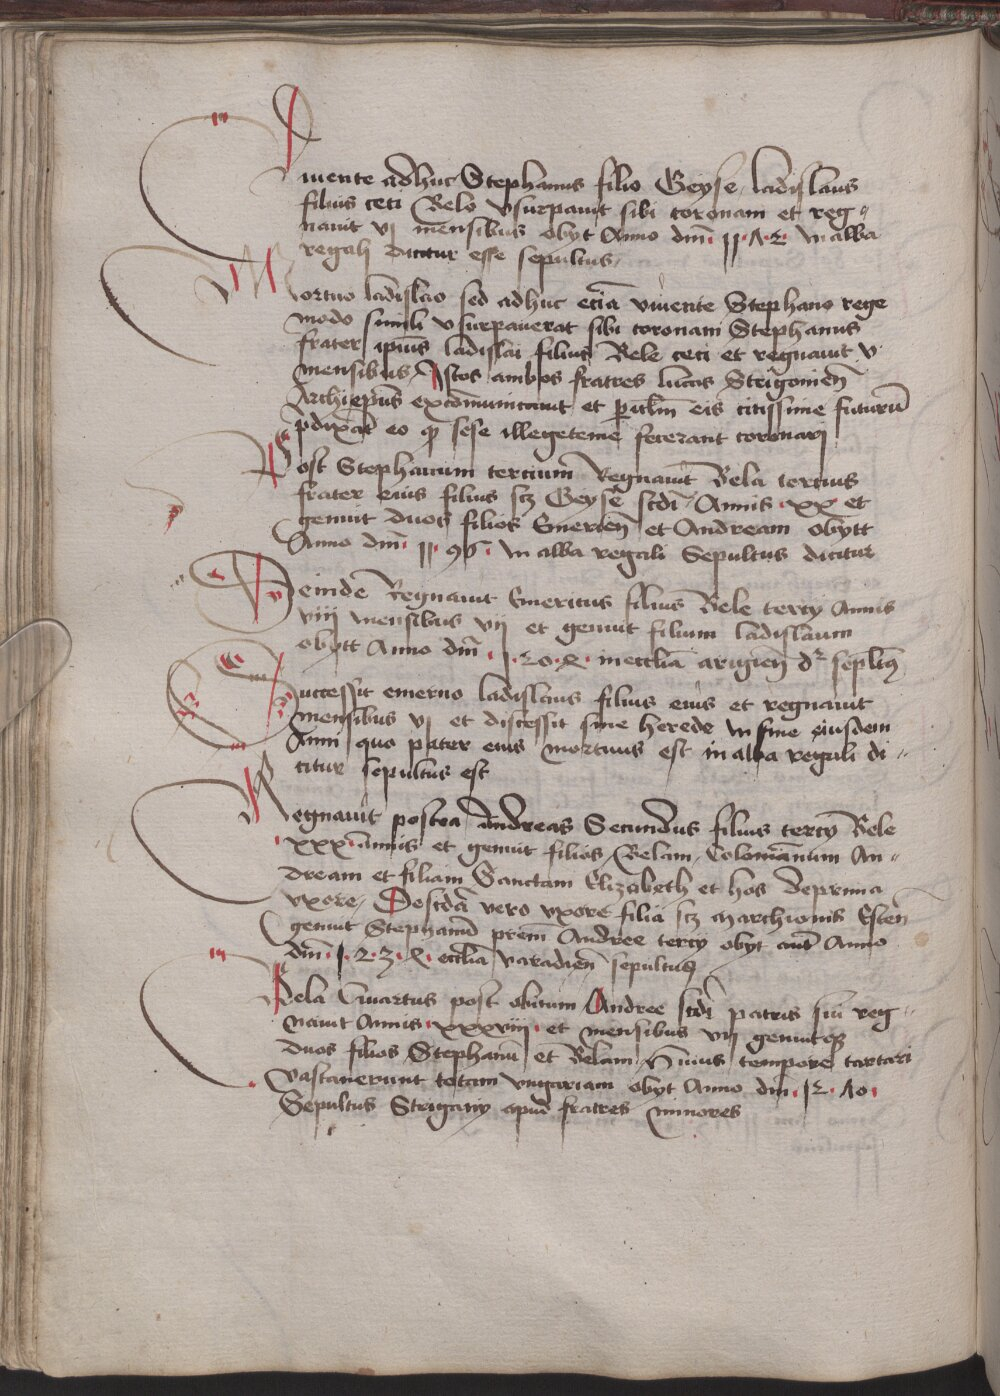 Viuente adhuc Stephanus filio Geyse ladislaus
filius ceci Belo vsurpauit sibi coronam et reg-
nauit vj mensibus obyt Anno dm̄ 1172 In alba
regali dicitur esse sepultus
Mortuo ladislao sed adhuc eciā viuente Stephano rege
modo simili vsurpauerat sibi coronam Stephanus
frater ipīus ladislai filius Bele ceci et regnauit v
mensibus Istos ambos fratres lucas Strigonien̄
Archiep̄us excōmunicauit et eis citissime futurū
eo sese illegeteme fecerant coronari
Post Stephanum tercium Regnauit Bela tercius
frater eius filius scz Geyse scdi Annis xx et
genuit duos filios Emericū et Andream Obytt
Anno dm̄ 1196 In alba regali Sepultus dicitur
Deinde Regnauit Emericus filius Bele tercy Annis
viij mensibus vij et genuit filium ladislaum
obytt Anno dm̄ 1·20·X· in eccl̄ia agrien̄ dr̄
Successit emerico ladislaus filius eius et regnauit
mensibus vj et discessit sine herede In fine eiusdem
Anni quo pater eius mortuus est in alba regali di-
citur sepultus est
Regnauit postea Andreas Secundus filius tercy Bele
xxx annis et genuit filios Belam Colomānum An-
dream et filiam Sanctam Elizabeth et hos de prima
vxore De scdā vero vxore filia scz marchionis Esten̄
genuit Stephanū prēm Andree tercy obyt aut̄ Anno
dm̄ 1·2·3·X· eccl̄ia varadien̄ sepultus
Bela Quartus post obitum Andree scdi patris sui reg-
nauit Annis xxxviij et mensibus vij genuitqz
duos filios Stephanū et Belam Huius tempore tartari
vastauerunt totam vngariam obyt Anno dm̄ 12·70·
Sepultus Strigony apud fratres minores